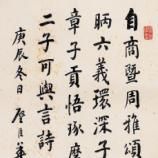 自商暨周雅頌
昞六義環深子
章子貢悟琢磨
二子可與言詩
庚辰冬日